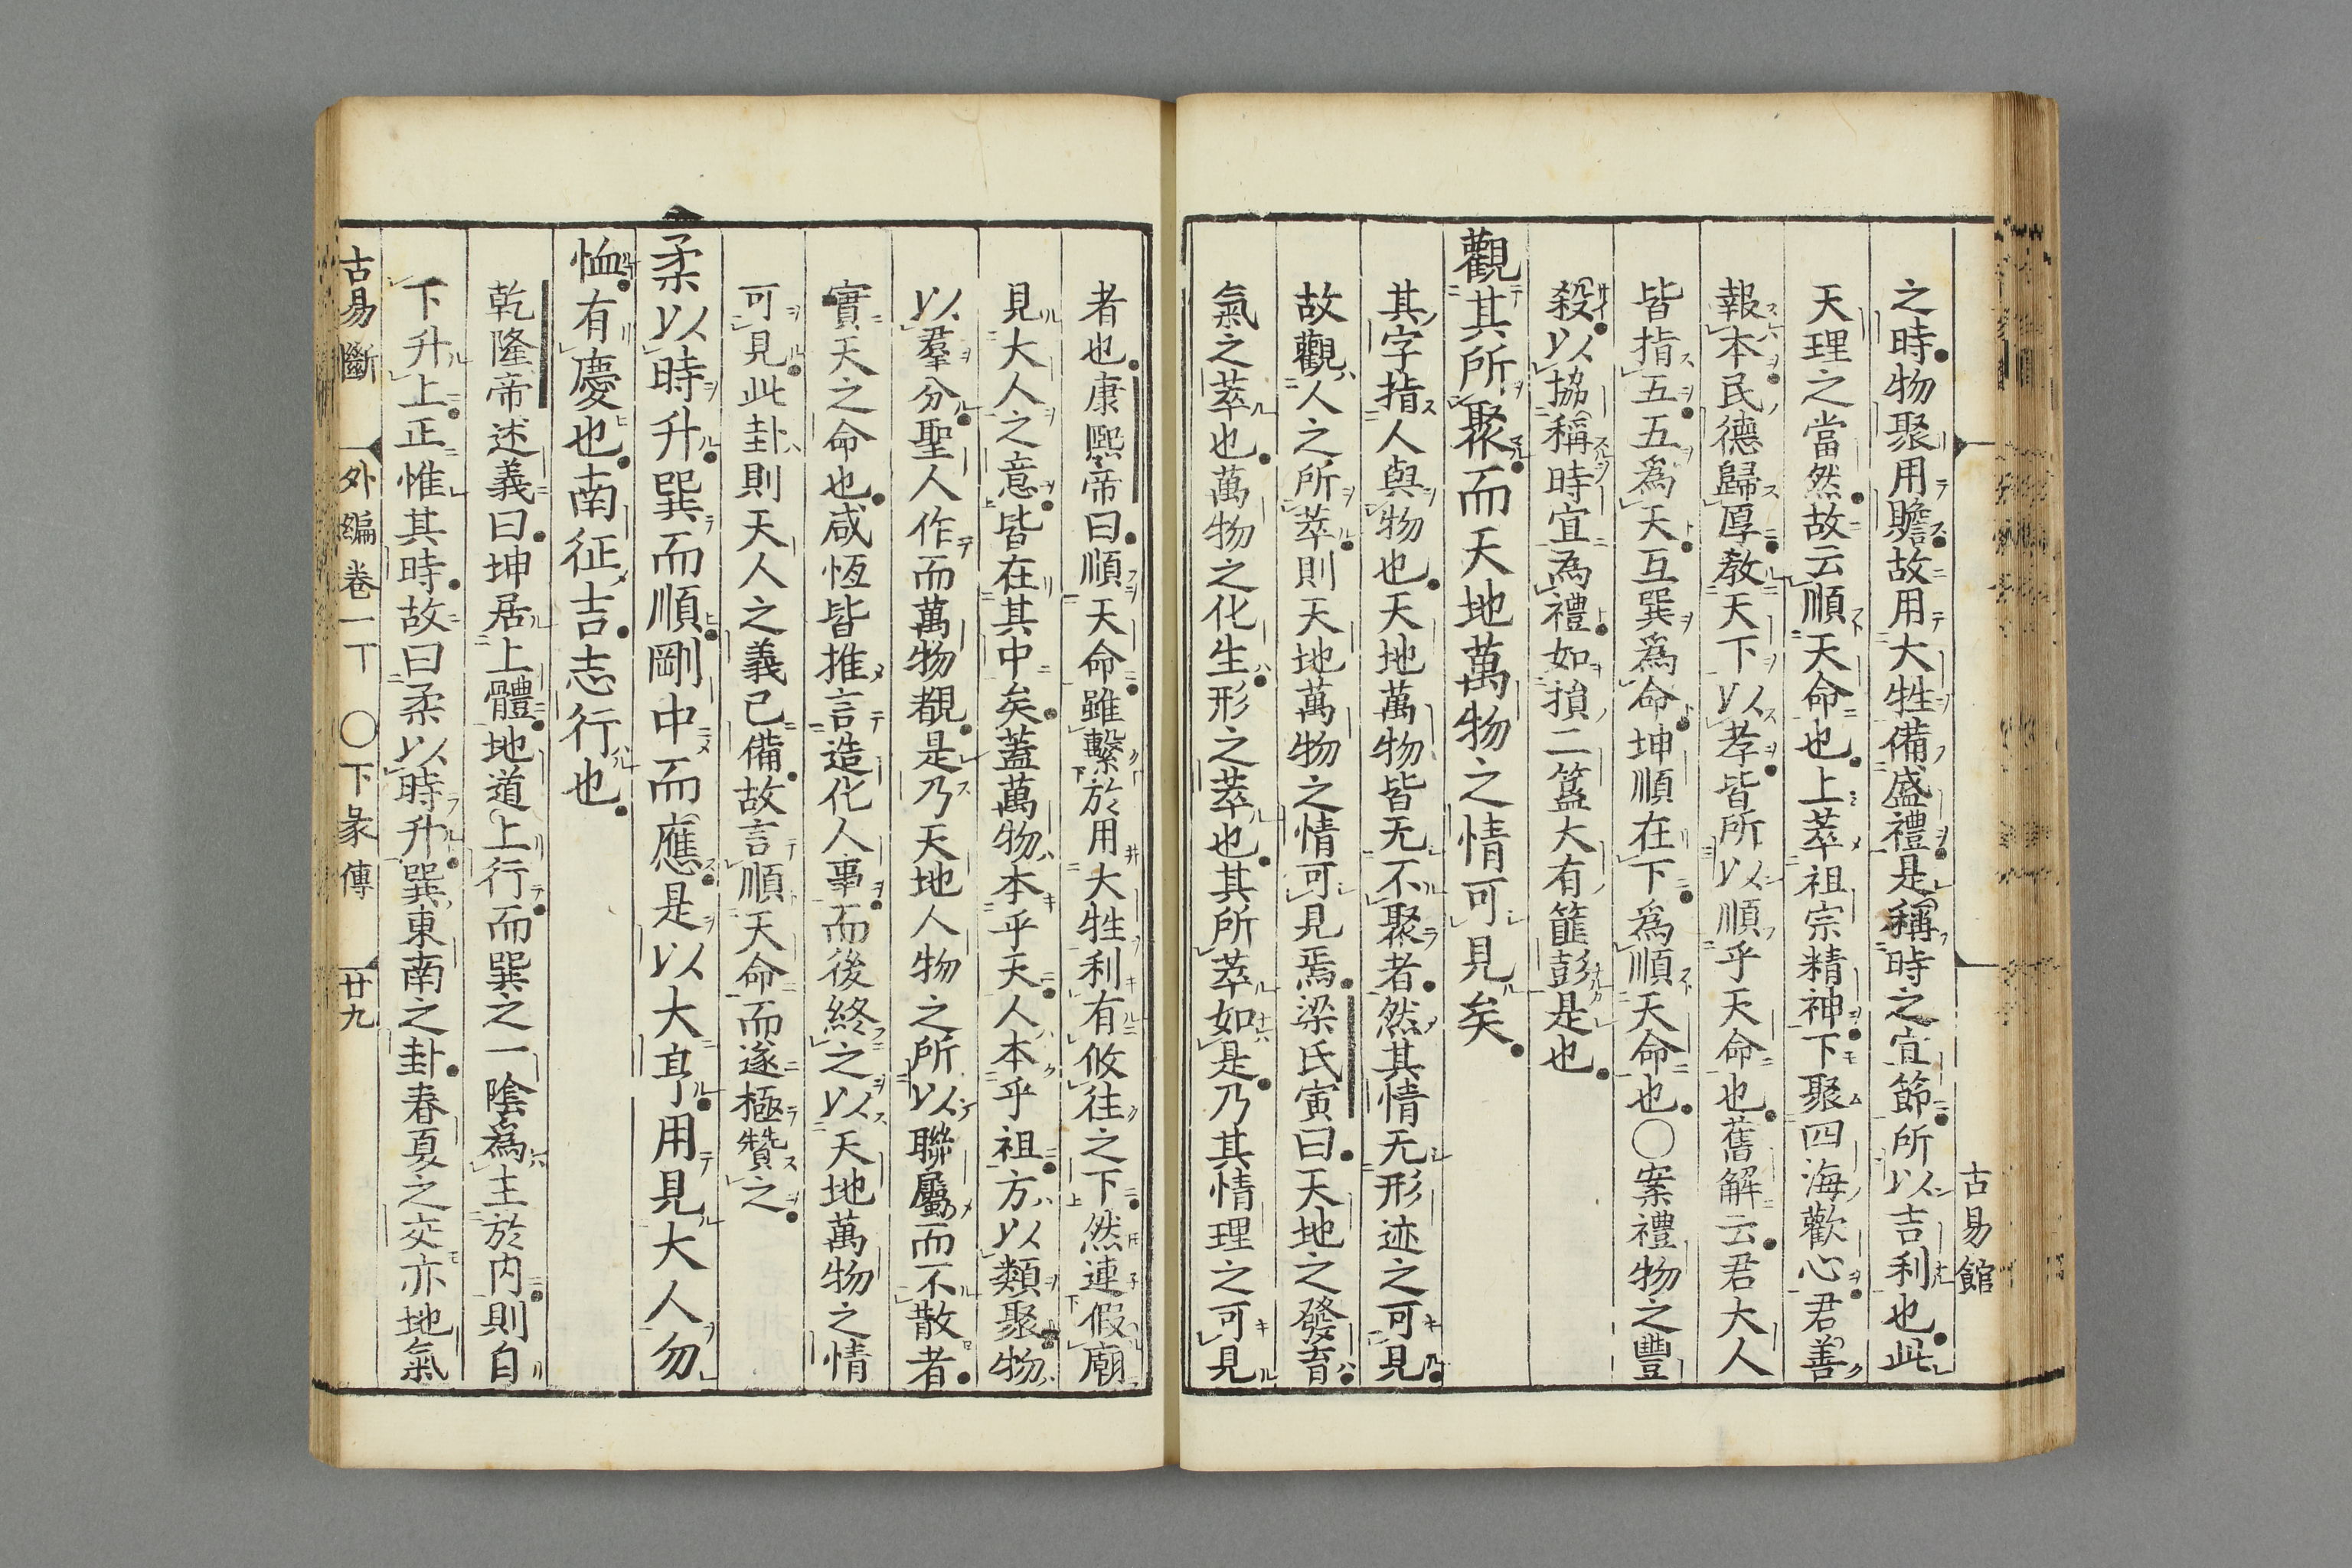 之時物聚用贍故用大牲備盛禮是稱時之宜節所以吉利也此
天理之當然故云順天命也上萃祖宗精神下聚四海歡心君善
報本民德歸厚教天下以孝皆所以順乎天命也舊解云君大人
皆指五五爲天互巽爲命坤順在下爲順天命也○案禮物之豐
殺以協稱時宜為禮如損二簋大有匪彭是也
觀其所聚而天地萬物之情可見矣
其字指人與物也天地萬物皆无不聚者然其情无形迹之可見
故觀人之所萃則天地萬物之情可見焉梁氏寅曰天地之發育
氣之萃也萬物之化生形之萃也其所萃如是乃其情理之可見
古易館
者也康熙帝曰順天命雖繫於用大牲利有攸往之下然連假廟
見大人之意皆在其中矣蓋萬物本乎天人本乎祖方以類聚物
以羣分聖人作而萬物覩是乃天地人物之所以聯屬而不散者
實天之命也咸恆皆推言造化人事而後終之以天地萬物之情
可見此卦則天人之義已備故言順天命而遂極贊之
柔以時升巽而順剛中而應是以大亨用見大人勿
恤有慶也南征吉志行也
乾隆帝述義曰坤居上體地道上行而巽之一陰為主於内則自
下升上正惟其時故曰柔以時升巽東南之卦春夏之交亦地氣
古易斷 外編卷一下 ○下彖傳 廿九